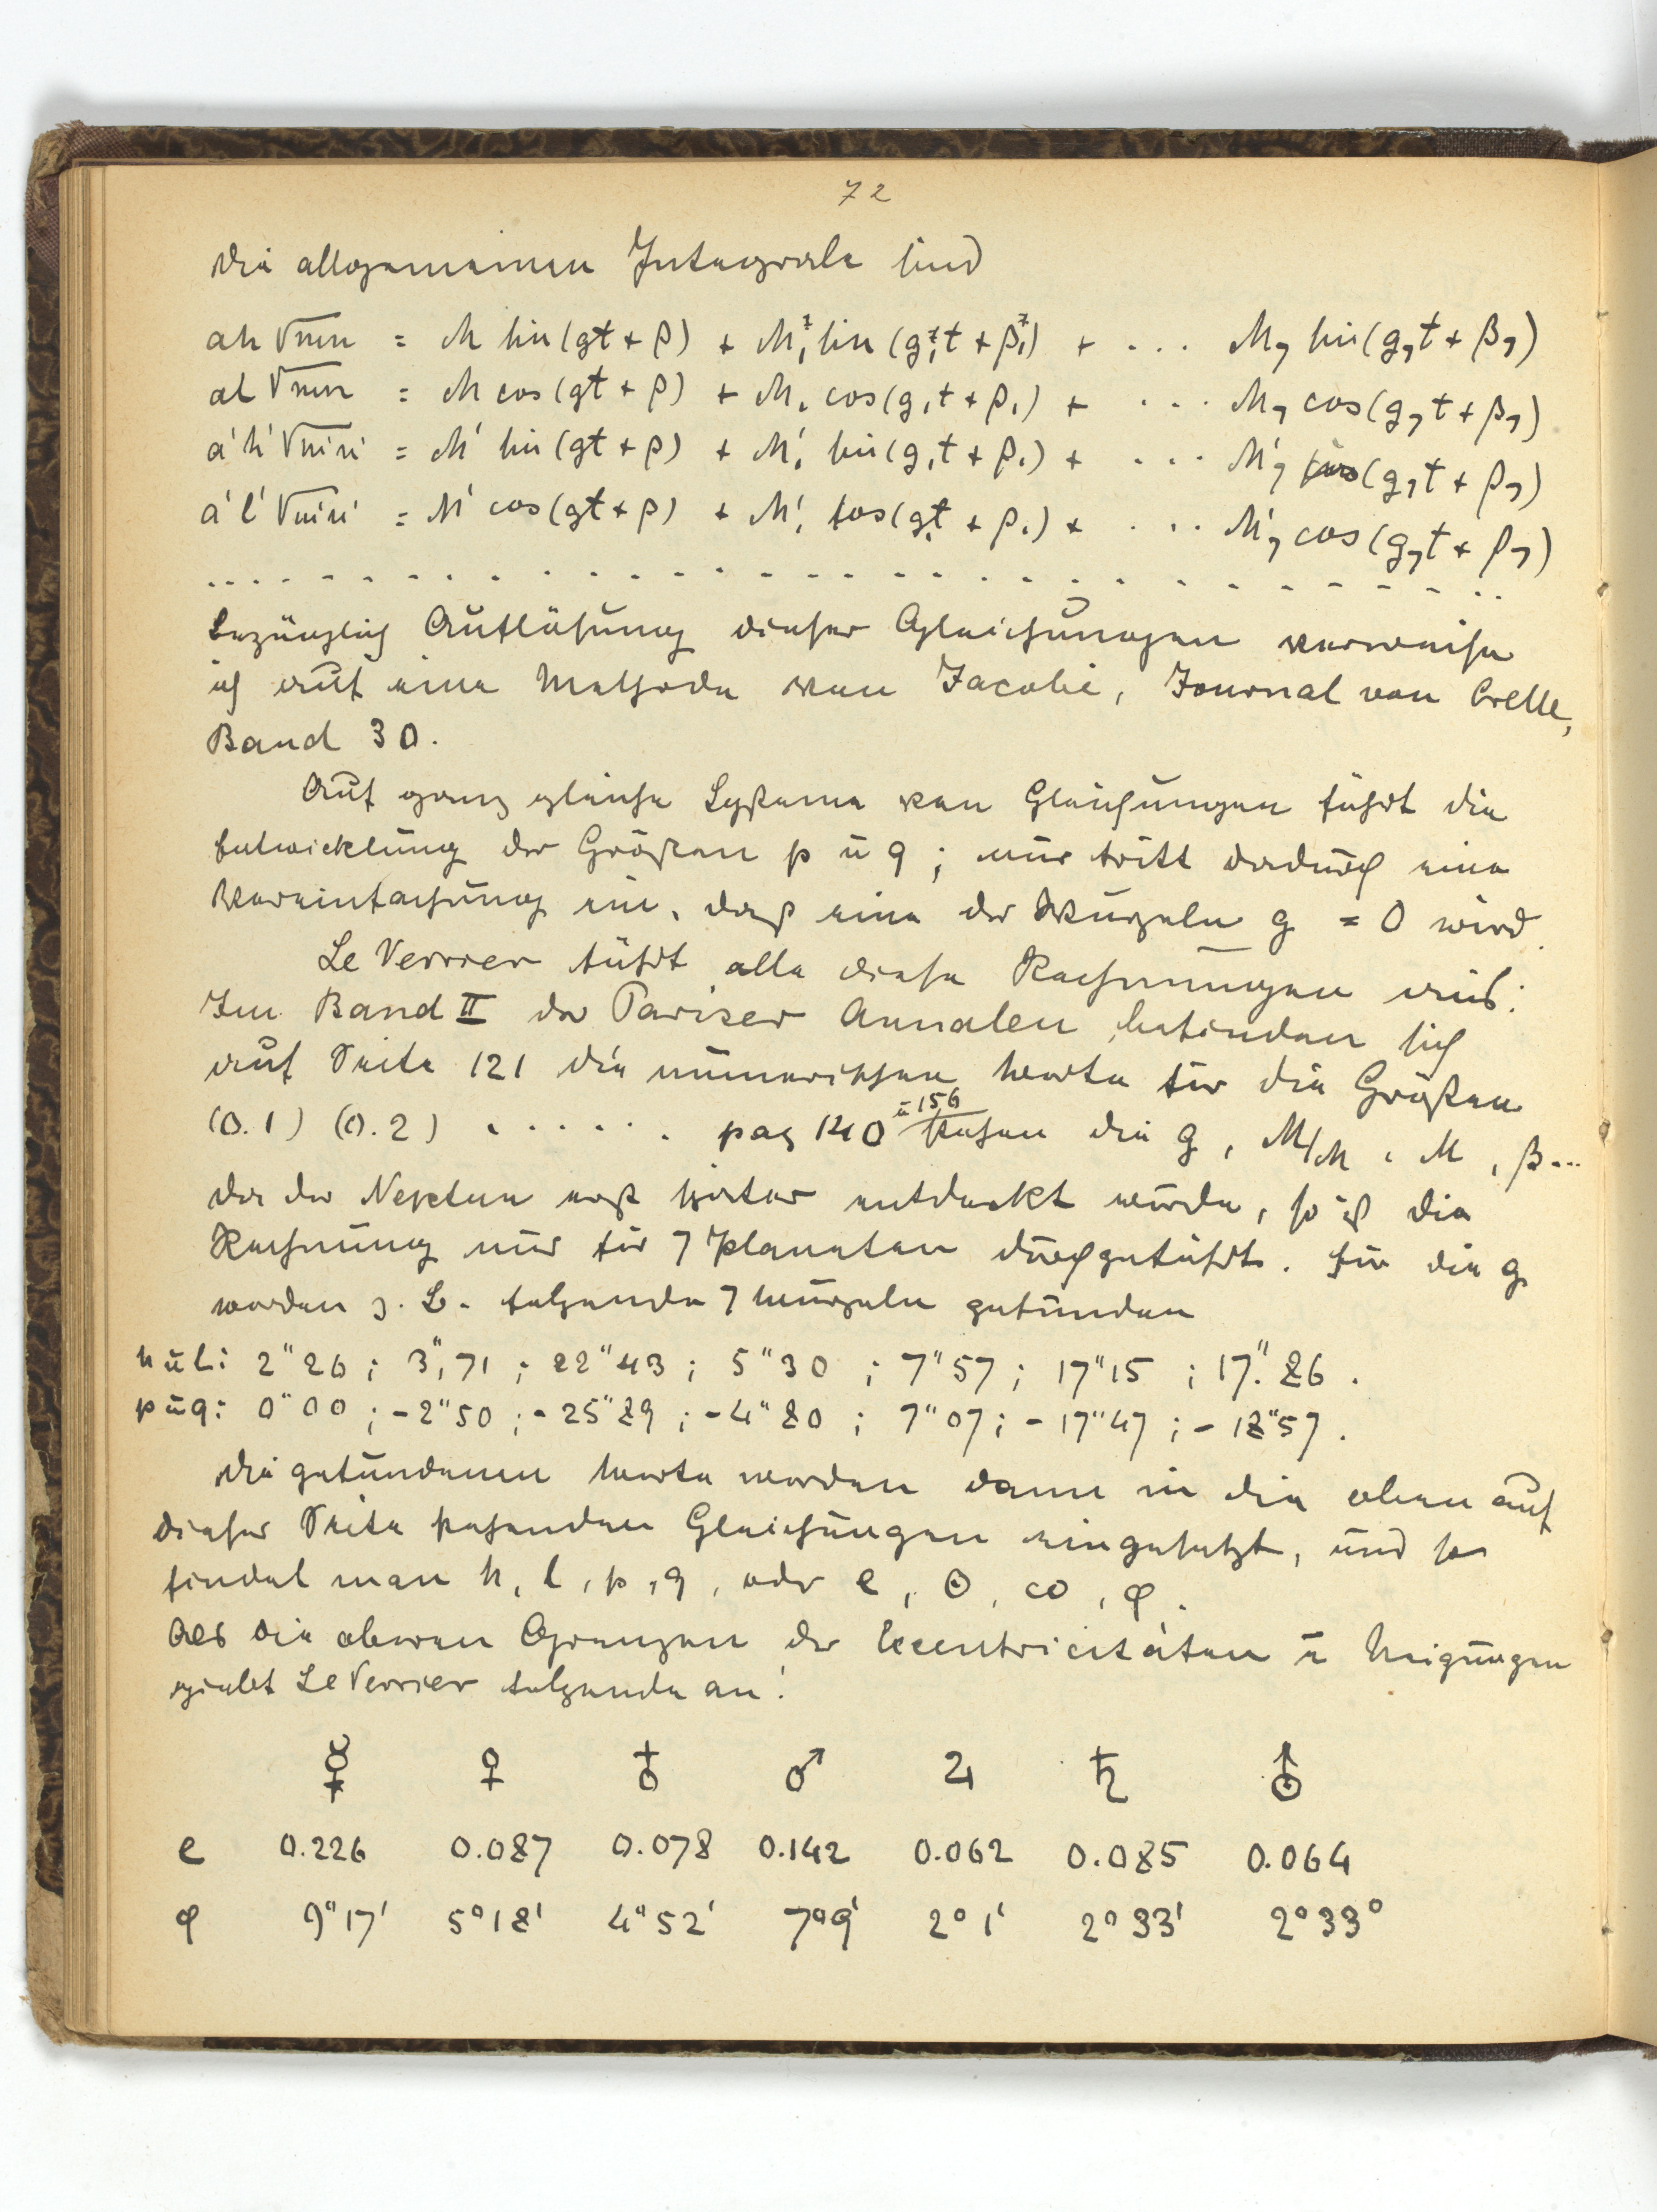 72
Die allgemeinen Integrale sind
ah √mn = M sin(gt + β) + M₁ sin(g₁t + β₁) + . . . M₇ sin(g₇t + β₇)
al √mn = M cos(gt + β) + M₁ cos(g₁t + β₁) + . . . M₇ cos(g₇t + β₇)
a'h' √m'n' = M' sin(gt + β) + M'₁ sin(g₁t + β₁) + . . . M'₇ sin(g₇t + β₇)
a'l' √m'n' = M' cos(gt + β) + M'₁ cos(g₁t + β₁) + . . . M'₇ cos(g₇t + β₇)
. . . . . . . . . . . . . . . . . . . . . . . . . . . . . .
bezüglich Auflösung dieser Gleichungen verweise
ich auf eine Methode von Jacobi, Journal von Crelle,
Band 30.
Auf ganz gleiche Systeme von Gleichungen führt die
Entwicklung der Größen p u q; nur tritt dadurch eine
Vereinfachung ein, daß eine der Wurzeln g = 0 wird.
Le Verrier führt alle diese Rechnungen aus:
Im Band II der Pariser Annalen befinden sich
auf Seite 121 die numerischen Werte für die Größen
(0.1) (0.2) . . . . . . pag 140 u 156 stehen die g, M/M, M, β...
Da der Neptun erst später entdeckt wurde, so ist die
Rechnung nur für 7 Planeten durchgeführt. Für die g
werden z. B. folgende 7 Wurzeln gefunden
h u l: 2"26 ; 3",71 ; 22"43 ; 5"30 ; 7"57 ; 17"15 ; 17."86 .
p u q: 0"00 ; -2"50 ; -25"89 ; -4"80 ; 7"07 ; -17"47 ; -18"57 .
Die gefundenen Werte werden dann in die oben auf
dieser Seite stehenden Gleichungen eingesetzt, und so
findet man h, l, p, q, oder e, Θ, ω, φ.
Als die oberen Grenzen der Excentricitäten u Neigungen
giebt Le Verrier folgende an:
☿ ♀ ♁ ♂ ♃ ♄ ⛢
e 0.226 0.087 0.078 0.142 0.062 0.085 0.064
φ 9°17' 5°18' 4°52' 7°9' 2°1' 2°33' 2°33°